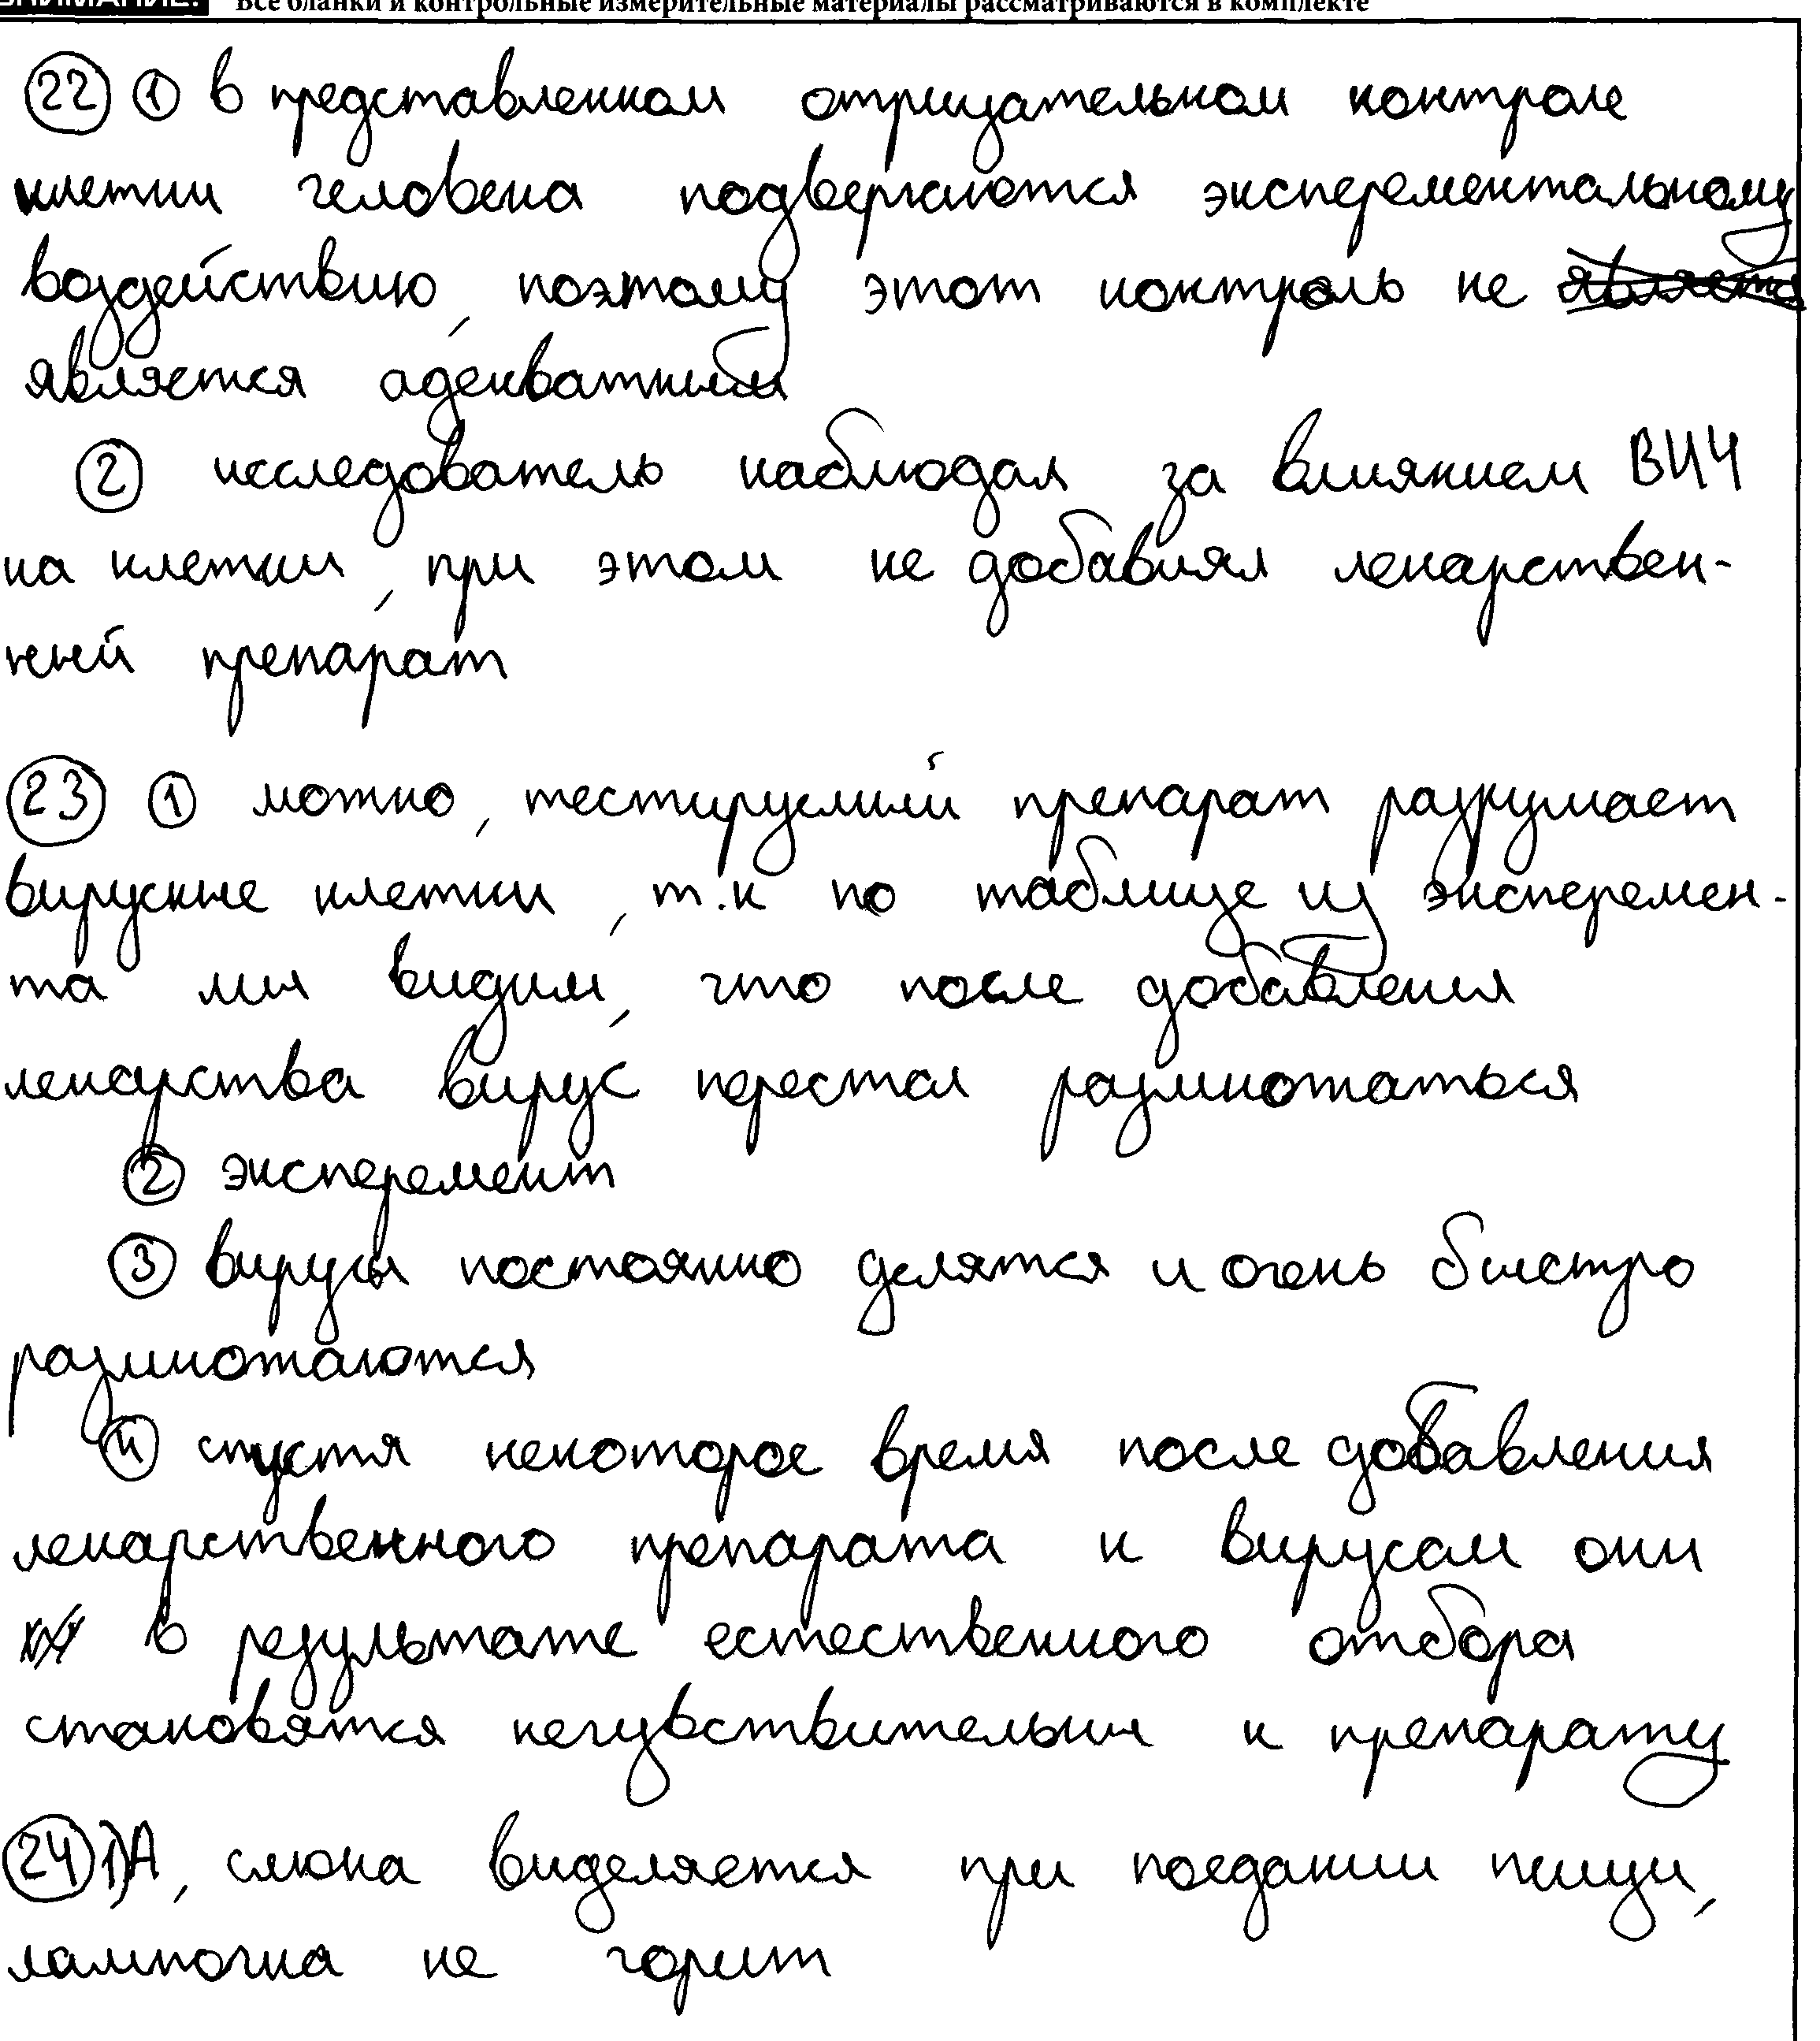 ВНИМАНИЕ! Все бланки и контрольные измерительные материалы рассматриваются в комплекте
22 1 в представленном отрицательном контроле
клетки человека подвергаются эксперементальному
воздействию, поэтому этот контроль не
является адекватным
2 исследователь наблюдал за влиянием ВИЧ
на клетки, при этом не добавлял лекарствен-
ный препарат
23 1 можно, тестируемый препарат разрушает
вирусные клетки, т.к по таблице из эксперемен-
та мы видим, что после добавления
лекарства вирус перестал размножаться
2 эксперемент
3 вирусы постоянно делятся и очень быстро
размножаются
4 спустя некоторое время после добавления
лекарственного препарата к вирусам они
в результате естественного отбора
становятся нечувствительны к препарату
24 1)А, слюна выделяется при поедании пищи,
лампочка не горит